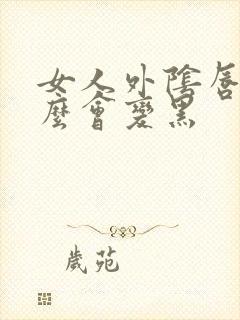 女人外陰唇
麼會變黑
歲苑